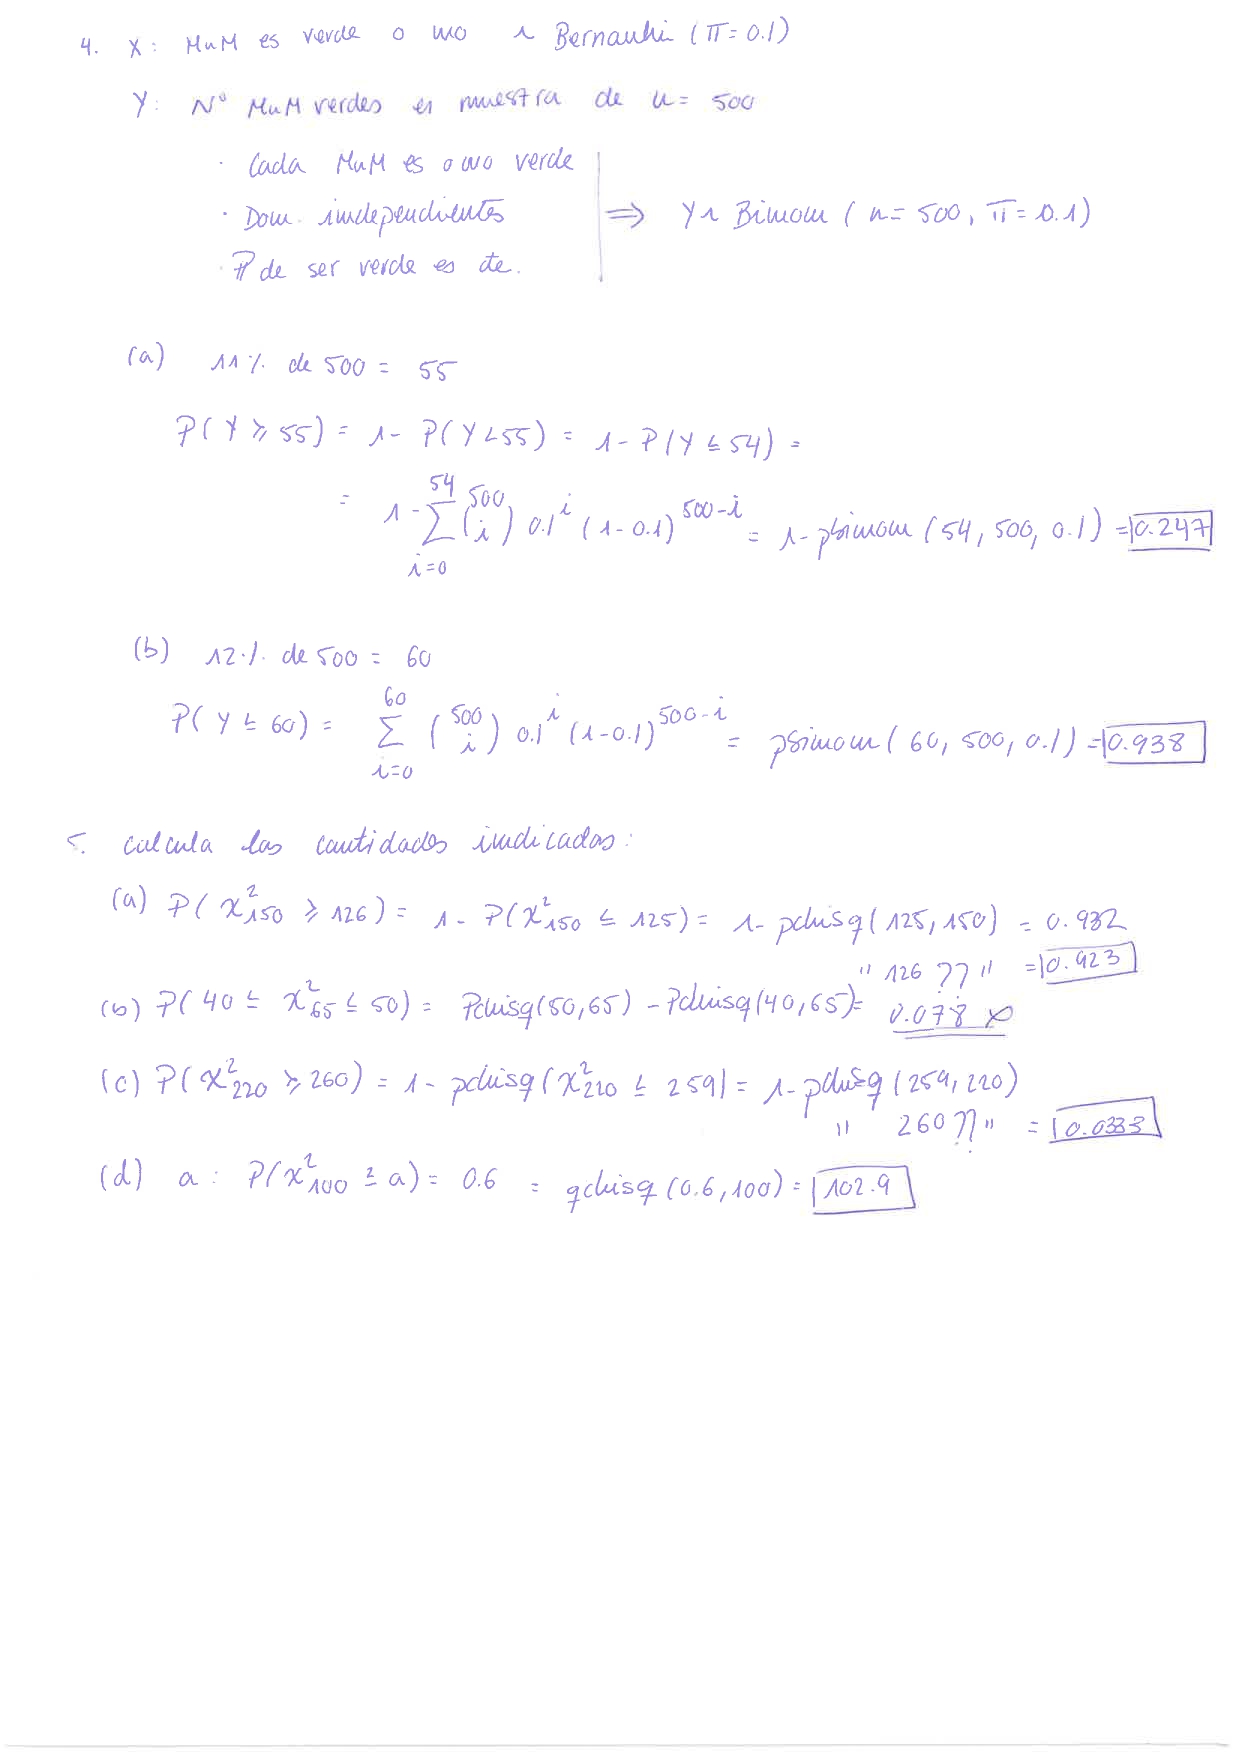 4. X: MuM es verde o no ~ Bernoulli (π = 0.1)
Y: Nº MuM verdes en muestra de n = 500
· Cada MuM es o no verde
· Dom. independientes ⟹ Y ~ Binom (n = 500, π = 0.1)
· P de ser verde es cte.
(a) 11% de 500 = 55
P(Y ≥ 55) = 1 - P(Y < 55) = 1 - P(Y ≤ 54) =
= 1 - ∑_{i=0}^{54} (500 i) 0.1^i (1-0.1)^{500-i} = 1 - pbinom (54, 500, 0.1) = 0.247
(b) 12% de 500 = 60
P(Y ≤ 60) = ∑_{i=0}^{60} (500 i) 0.1^i (1-0.1)^{500-i} = pbinom (60, 500, 0.1) = 0.938
5. Calcula las cantidades indicadas:
(a) P(χ²_150 ≥ 126) = 1 - P(χ²_150 ≤ 125) = 1 - pchisq (125, 150) = 0.932
" 126 ?? " = 0.923
(b) P(40 ≤ χ²_65 ≤ 50) = Pchisq(50,65) - Pchisq(40,65) = 0.078
(c) P(χ²_220 ≥ 260) = 1 - pchisq (χ²_220 ≤ 259) = 1 - pchisq (259, 220)
" 260 ?? " = 0.0333
(d) a : P(χ²_100 ≤ a) = 0.6 = qchisq (0.6, 100) = 102.9